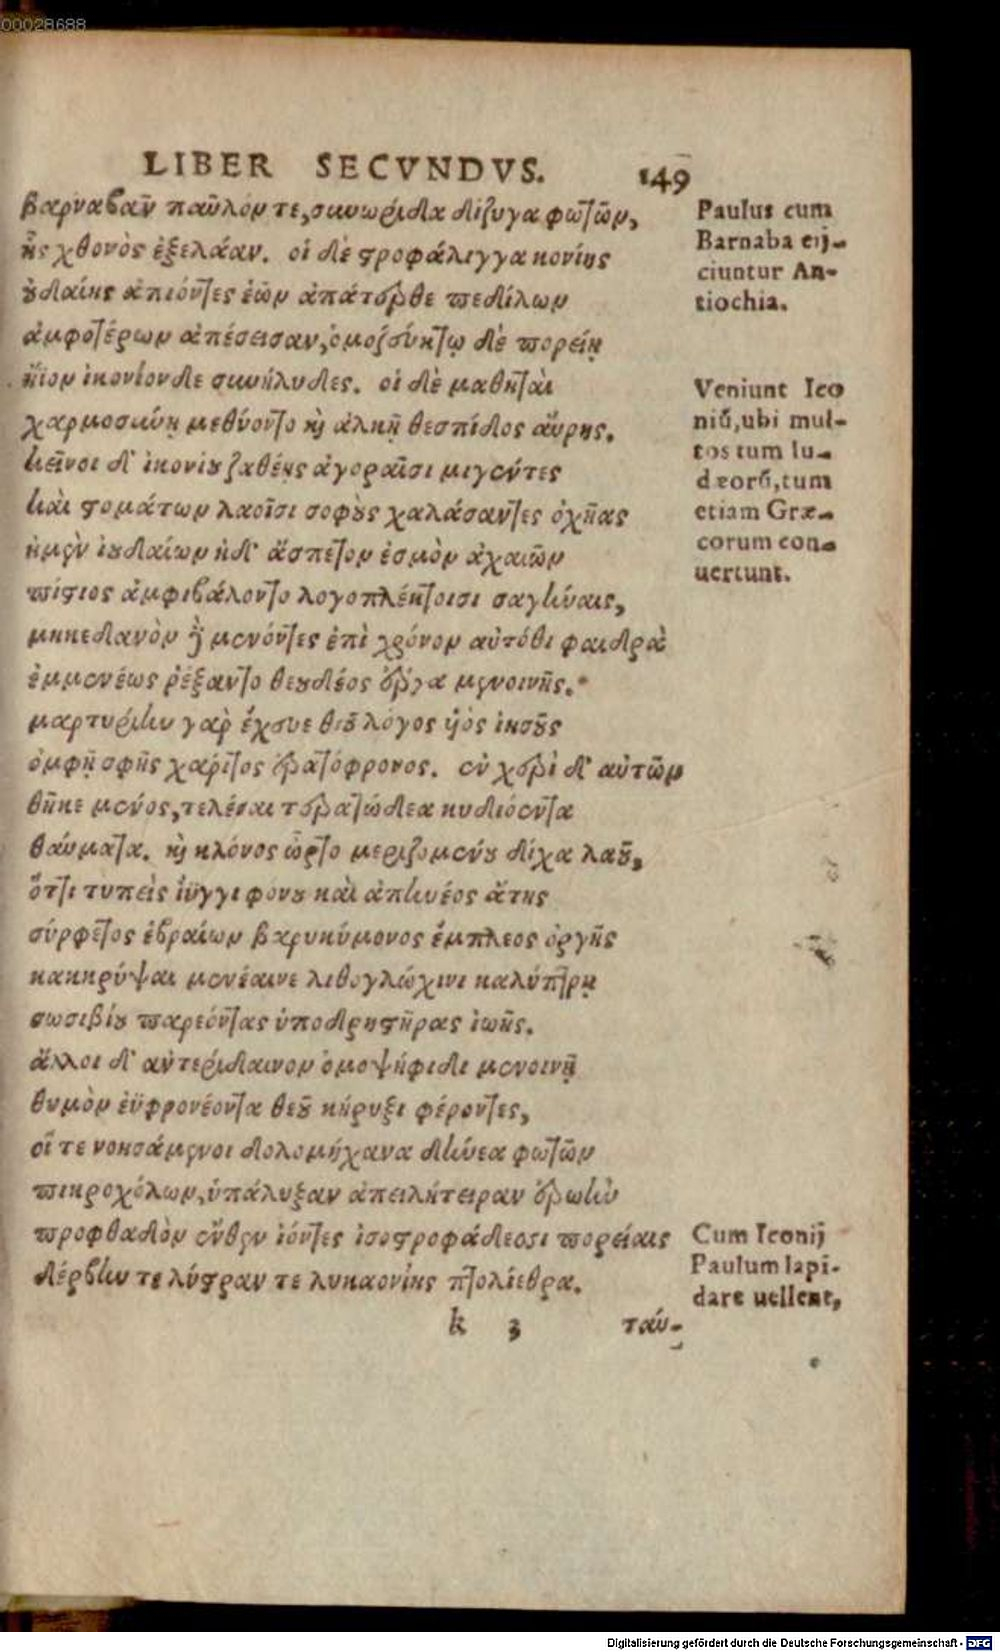 00028688
LIBER SECVNDVS. 149
βαρναβᾶν παῦλόν τε, συνωρίδα δίζυγα φωτῶν,
ἧς χθονὸς ἐξελάαν. οἱ δὲ στροφάλιγγα κονίης
οὐδαίης ἀπιόντες ἑῶν ἀπάτερθε πεδίλων
ἀμφοτέρων ἀπέσεισαν, ὁμοζεύκτῳ δὲ πορείῃ
ἤϊον ἰκονίονδε συνήλυδες. οἱ δὲ μαθηταὶ
χαρμοσύνῃ μεθύοντο καὶ ἀλκῇ θεσπίδος αὔρης.
κεῖνοι δ' ἰκονίου ζαθέης ἀγοραῖσι μιγέντες
καὶ στομάτων λαοῖσι σοφοὺς χαλάσαντες ὀχῆας
ἠμὲν ἰουδαίων ἠδ' ἄσπετον ἑσμὸν ἀχαιῶν
πίστιος ἀμφιβάλοντο λογοπλέκτοισι σαγήναις,
μηκεδανὸν δὲ μένοντες ἐπὶ χρόνον αὐτόθι φαιδρὰ
ἐμμενέως ῥέξαντο θεουδέος ἔργα μενοινῆς.
μαρτυρίην γὰρ ἔχευε θεοῦ λόγος υἱὸς ἰησοῦς
ὀμφῇ σφῆς χάριτος ἐρατόφρονος. ἐν χερὶ δ' αὐτῶν
θῆκε μένος, τελέσαι τερατώδεα κυδιόεντα
θαύματα. καὶ κλόνος ὦρτο μεριζομένου δίχα λαοῦ,
ὅττι τυπεὶς ἴϋγγι φόνου καὶ ἀπηνέος ἄτης
σύρφετος ἑβραίων βαρυκύμονος ἔμπλεος ὀργῆς
κακκρύψαι μενέαινε λιθογλώχινι καλύπτρῃ
σωσιβίου παρεόντας ὑποδρηστῆρας ἰωῆς.
ἄλλοι δ' αὖτ' ἐρίδαινον ὁμοψήφιδι μενοινῇ
θυμὸν ἐϋφρονέοντα θεοῦ κήρυξι φέροντες,
οἵ τε νοησάμενοι δολομήχανα δήνεα φωτῶν
πικροχόλων, ὑπάλυξαν ἀπειλήτειραν ἐρωὴν
προφθαδὸν ἔνθεν ἰόντες ἰσοστροφάδεσσι πορείαις
δέρβην τε λύστραν τε λυκαονίης πτολίεθρα.
k 3 ταύ-
Paulus cum
Barnaba eij-
ciuntur An-
tiochia.
Veniunt Ico
niũ, ubi mul-
tos tum Iu-
dæorũ, tum
etiam Græ-
corum con-
uertunt.
Cum Iconij
Paulum lapi-
dare uellent,
Digitalisierung gefördert durch die Deutsche Forschungsgemeinschaft - DFG